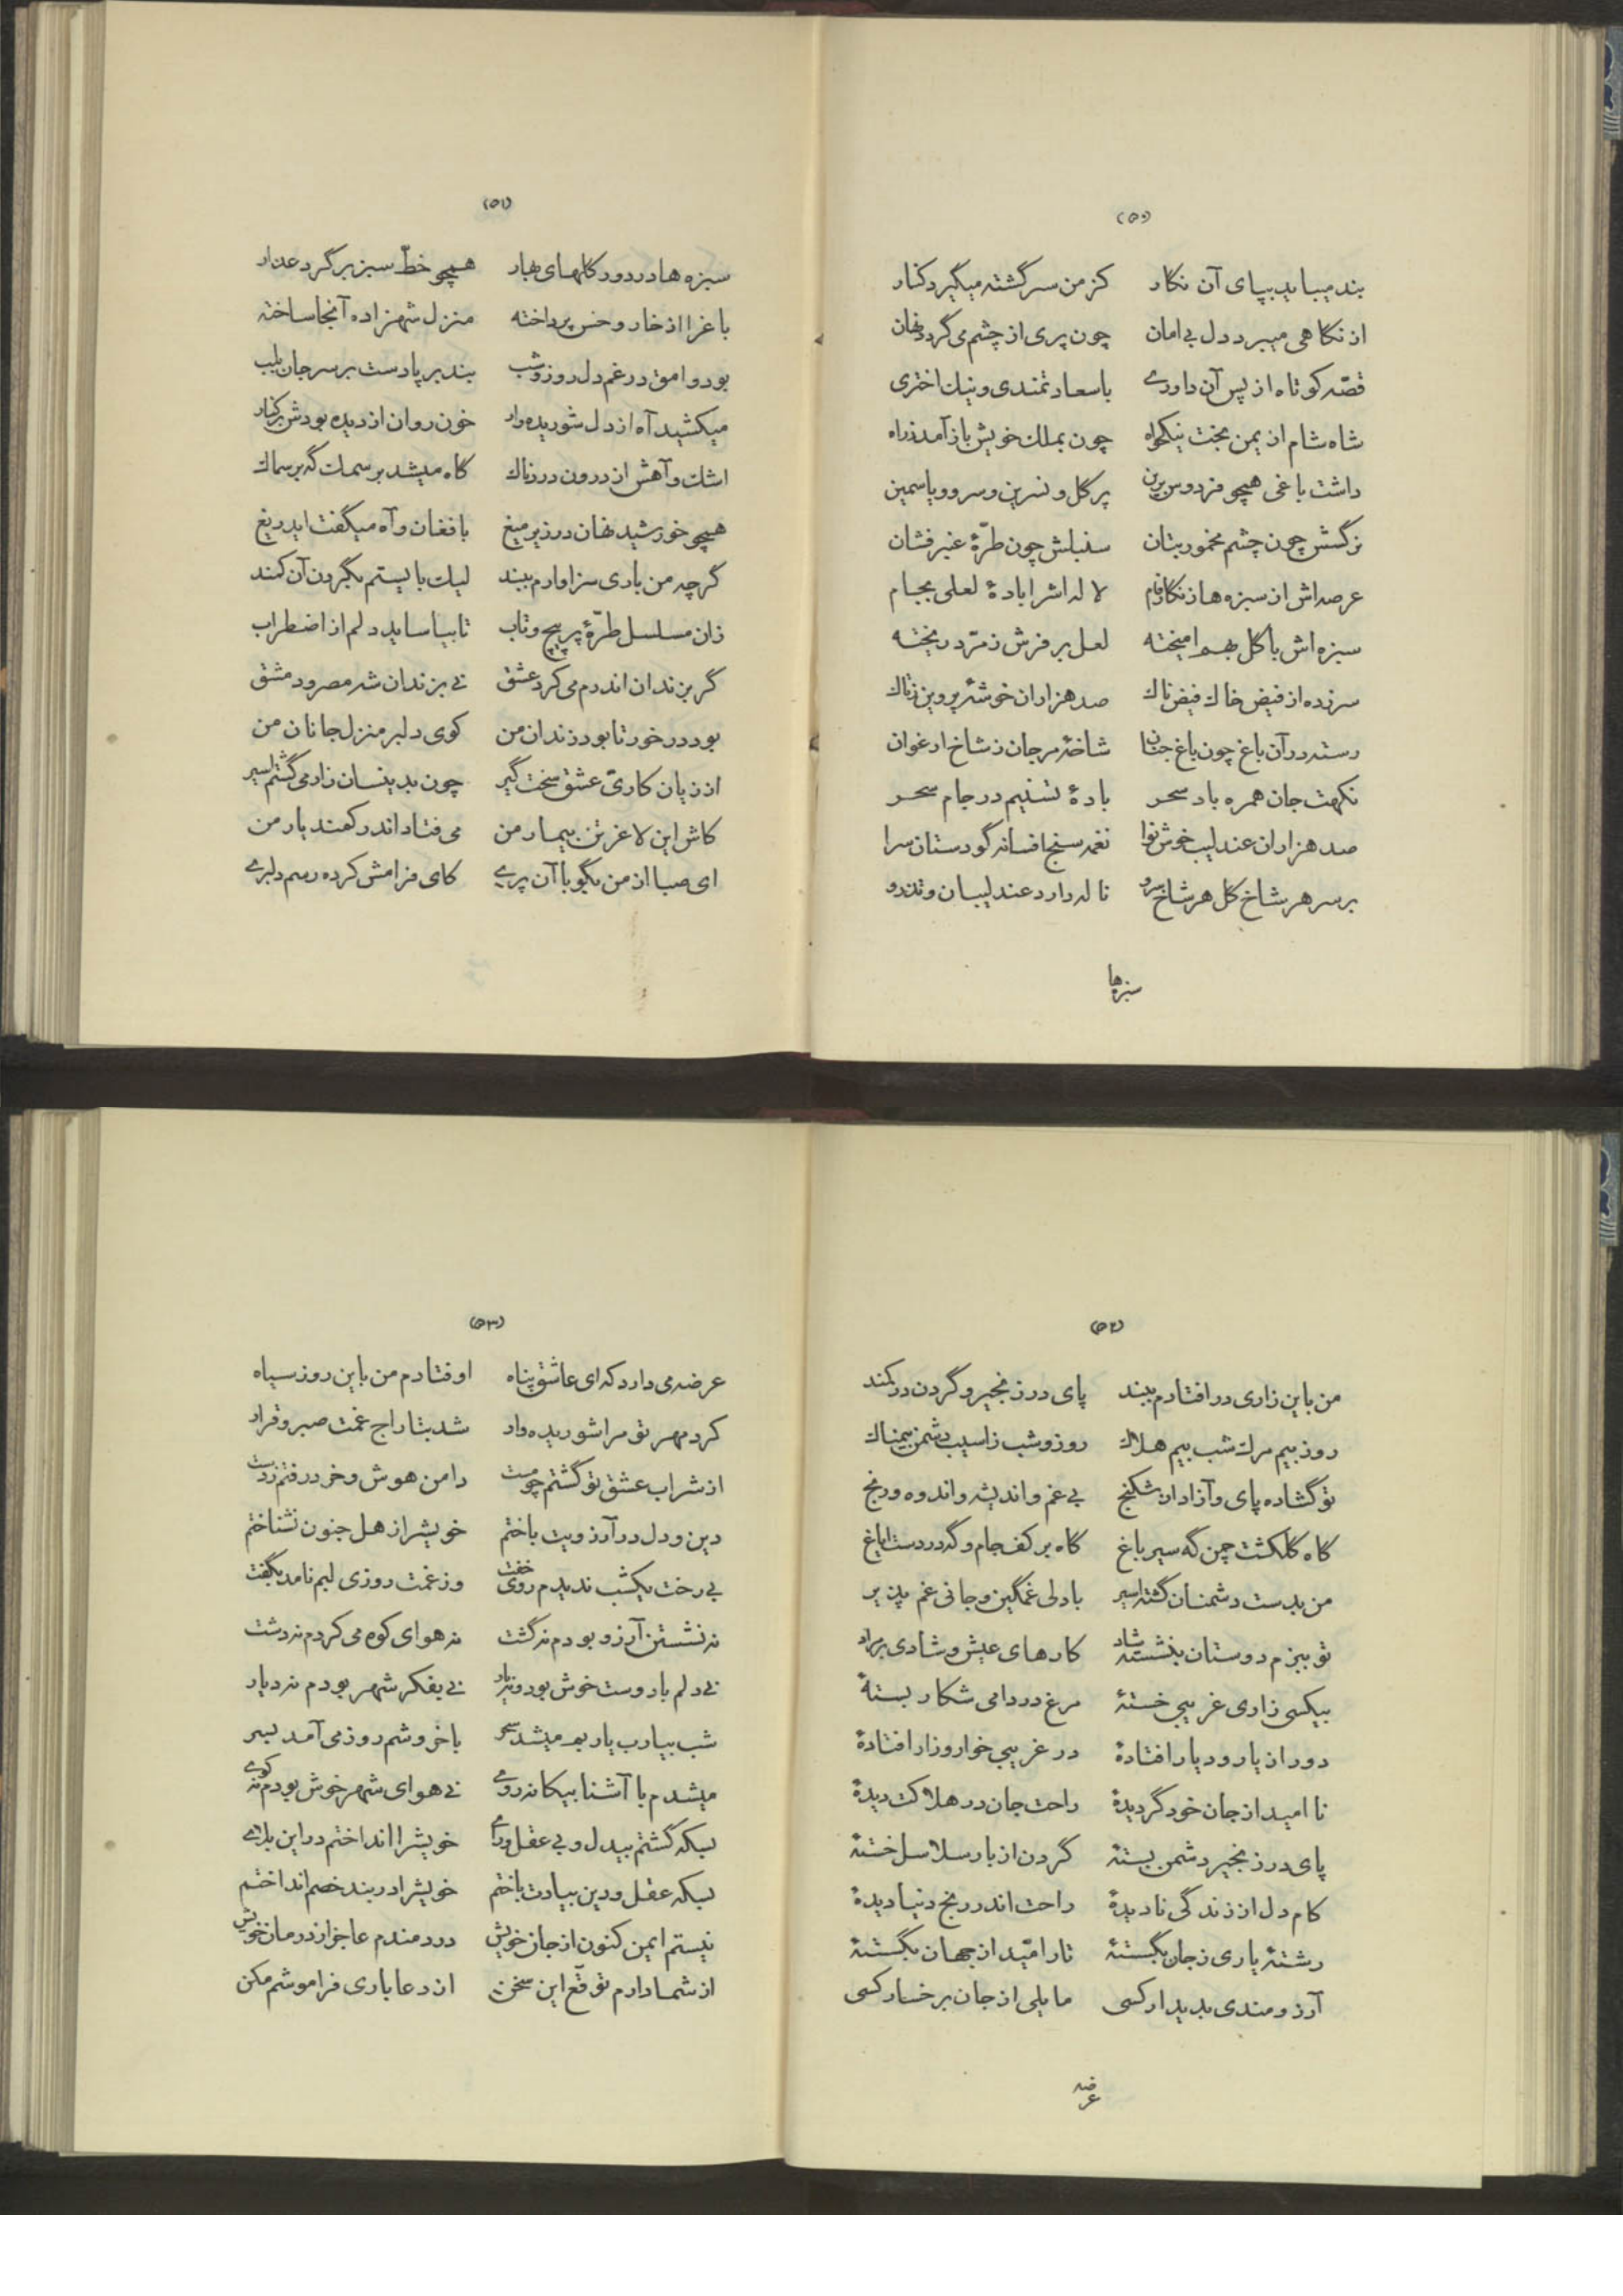 (۵۰)
بند میباید بپای آن نکار کز من سرگشته میگیرد کنار
از نکاهی میبرد دل بی امان چون پری از چشم می گردد نهان
قصّه کوتاه از پس آن داوری باسعادتمندی و نیك اختری
شاه شام از یمن بخت نیکخواه چون بملك خویش باز آمد ز راه
داشت باغی همچو فردوس برین پر کل و نسرین و سرو و یاسمین
نرگسش چون چشم مخمور بتان سنبلش چون طرّهٔ عنبر فشان
عرصه اش از سبزه ها زنکار فام لاله اش را بادهٔ لعلی بجام
سبزه اش با کل بهم امیخته لعل بر فرش زمرّد ریخته
سر زده از فیض خاك فیض ناك صد هزاران خوشهٔ پروین ز تاك
رسته در آن باغ چون باغ جنان شاخهٔ مرجان ز شاخ ارغوان
نکهت جان همره باد سحر بادهٔ تسنیم در جام سحر
صد هزاران عندلیب خوش نوا نغمه سنج افسانه گو دستان سرا
بر سر هر شاخ کل هر شاخ سرو ناله دارد عندلیبان و تذرو
سبزه ها
(۵۱)
سبزه ها در دور کلهای بهار همچو خطّ سبز بر گرد عذار
باغ را از خار و خس پرداخته منزل شهزاده آنجا ساخته
بود وامق در غم دل روز و شب بند بر پا دست بر سر جان بلب
میکشید آه از دل شوریده وار خون روان از دیده بودش بر کنار
اشك و آهش از درون دردناك کاه میشد بر سمك گه بر سماك
همچو خورشید نهان در زیر میغ با فغان و آه میگفت ایدریغ
گر چه من باری سزاوارم ببند لیك بایستم بگردن آن کمند
زان مسلسل طرّهٔ پر پیچ و تاب تا بیاساید دلم از اضطراب
گر بزندان اندرم می کرد عشق نی بزندان شه مصر و دمشق
بود در خور تا بود زندان من کوی دلبر منزل جانان من
از زیان کاریّ عشق سخت گیر چون بدینسان زار می گشتم اسیر
کاش این لاغر تن بیمار من می فتاد اندر کمند یار من
ای صبا از من بگو با آن پری کای فرامش کرده رسم دلبری
(۵۲)
من باین زاری در افتادم ببند پای در زنجیر و گردن در کمند
روز بیم مرك شب بیم هلاك روز و شب ز اسیب دشمن بیمناك
تو گشاده پای و آزاد از شکنج بی غم و اندیشه و اندوه و رنج
کاه کلکشت چمن گه سیر باغ کاه بر کف جام و گه در دست ایاغ
من بدست دشمنان گشته اسیر با دلی غمگین و جانی غم پذیر
تو ببزم دوستان بنشسته شاد کارهای عیش و شادی بر مراد
بیکسی زاری غریبی خستهٔ مرغ در دامی شکار بستهٔ
دور از یار و دیار افتادهٔ در غریبی خوار و زار افتادهٔ
نا امید از جان خود گردیدهٔ راحت جان در هلاکت دیدهٔ
پای در زنجیر دشمن بستهٔ گردن از بار سلاسل خستهٔ
کام دل از زندگی نادیدهٔ راحت اندر رنج دنیا دیدهٔ
رشتهٔ یاری ز جان بگستهٔ تار امّید از جهان بگستهٔ
آرزومندی بدیدار کسی مایلی از جان برخسار کسی
عرضه
(۵۳)
عرضه می دارد که ای عاشق پناه اوفتادم من باین روز سیاه
کرد مهر تو مرا شوریده وار شد بتاراج غمت صبر و قرار
از شراب عشق تو گشتم چو مست دامن هوش و خرد رفتم ز دست
دین و دل در آرزویت باختم خویش را ز هل جنون نشناختم
بی رخت یکشب ندیدم روی خفت وز غمت روزی لبم نامد بگفت
نه نشستن آرزو بودم نه گشت نه هوای کوه می کردم نه دشت
نی دلم با دوست خوش بود و نه یار نی بفکر شهر بودم نه دیار
شب بیارب یاربم میشد سحر با خروشم روز می آمد بسر
میشدم با آشنا بیکانه روی نی هوای شهر خوش بودم نه کوی
بسکه گشتم بیدل و بی عقل و رای خویش را انداختم در این بلای
بسکه عقل و دین بیادت باختم خویش را در بند خصم انداختم
نیستم ایمن کنون از جان خویش دردمندم عاجز از درمان خویش
از شما دارم توقّع این سخن از دعا باری فراموشم مکن